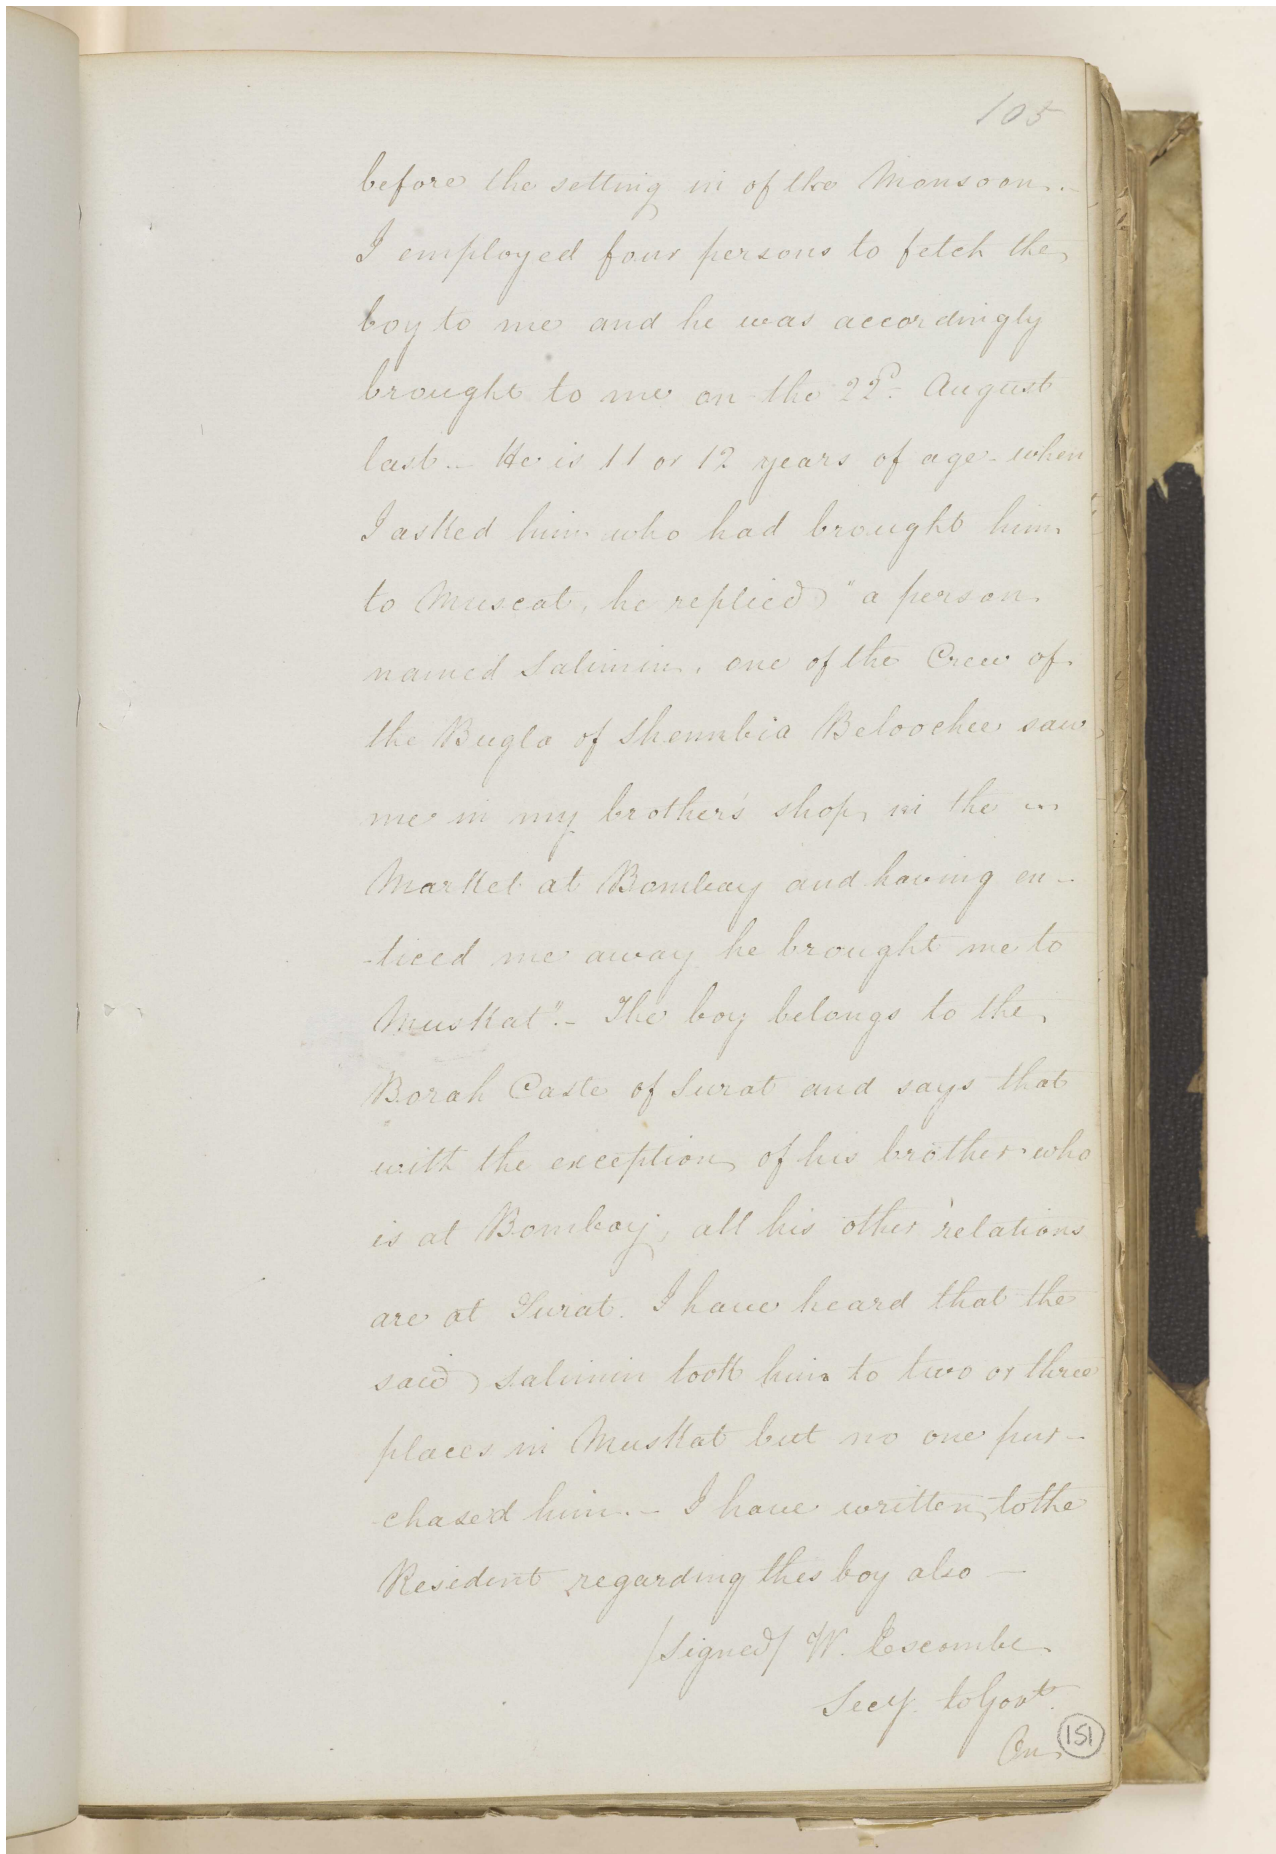 105
before the setting in of the Monsoon.-
I employed four persons to fetch the
boy to me and he was accordingly
brought to me on the 22d. August
last.- He is 11 or 12 years of age - when
I asked him who had brought him
to Muscat, he replied "a person
named Salimin, one of the Crew of
the Bugla of Shembia Beloochee saw
me in my brother's shop, in the
Market at Bombay and having en-
-ticed me away he brought me to
Muskat".- The boy belongs to the
Borah Caste of Surat and says that
with the exception of his brother who
is at Bombay, all his other relations
are at Surat. I have heard that the
said Salimin took him to two or three
places in Muskat but no one pur-
chased him.- I have written to the
Resident regarding this boy also -
/Signed/ W. Escombe
Secy. to Govt.
151